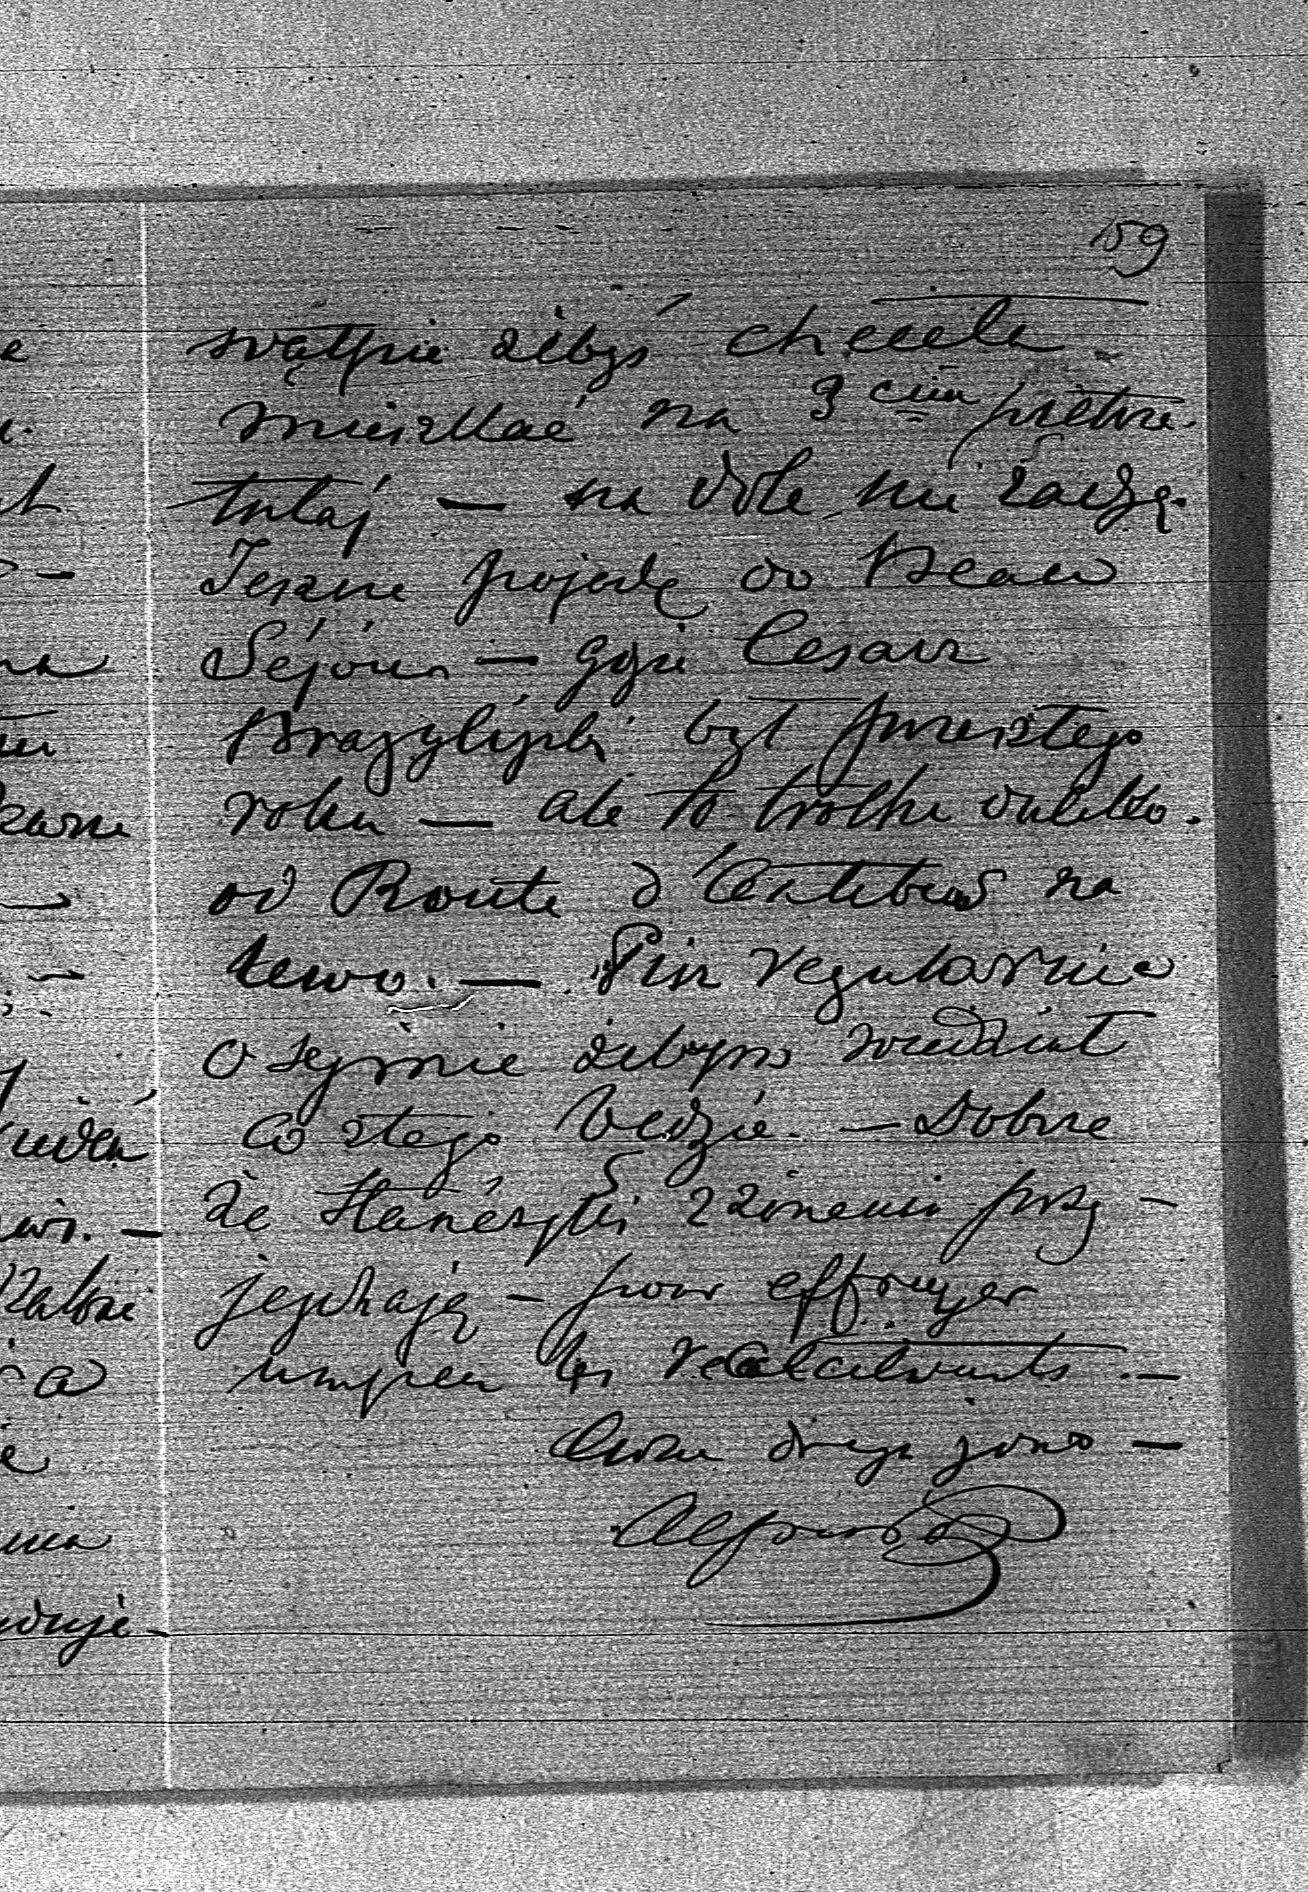 159
wątpię żebyś chciała
mieszkać na 3cim piętrze
tutaj — na dole nie radzą.
Jeszcze pojadę do Beau
Séjour — gdzie Cesarz
Brazylijski był przeszłego
roku — ale to trochę daleko.
od Route d'Antibes na
lewo. — Pisz regularnie
o sejmie żebym wiedział
co z tego będzie. — Dobrze
że Stanésyłki z żonami przy-
jeżdżają — pour effrayer
un peu les récalcitrants. —
Alfred